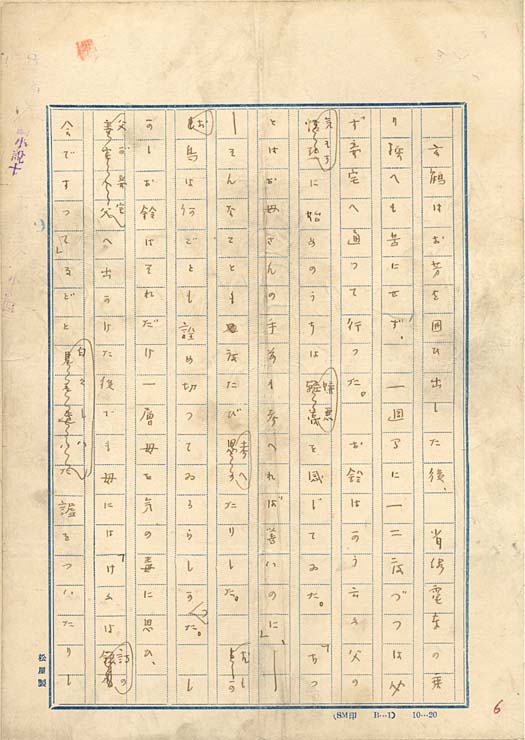 玄鶴はお芳を囲ひ出した後、省線電車の乗
り換へも苦にせず、一週間に一二度づつは必
ず妾宅へ通つて行つた。お鈴はかう云ふ父の
気もちに始めのうちは嫌悪を感じてゐた。「ちつ
とはお母さんの手前も考へれば善いのに、」―
―そんなことも度たび考へたりした。
お鳥は何ごとも詮め切つてゐるらしかつた。し
かしお鈴はそれだけ一層母を気の毒に思ひ、
父が妾宅へ出かけた後でも母には「けふは詩の
会ですつて」などと白々しい譃をついたりし
松屋製
(SM印 B…1) 10…20
6